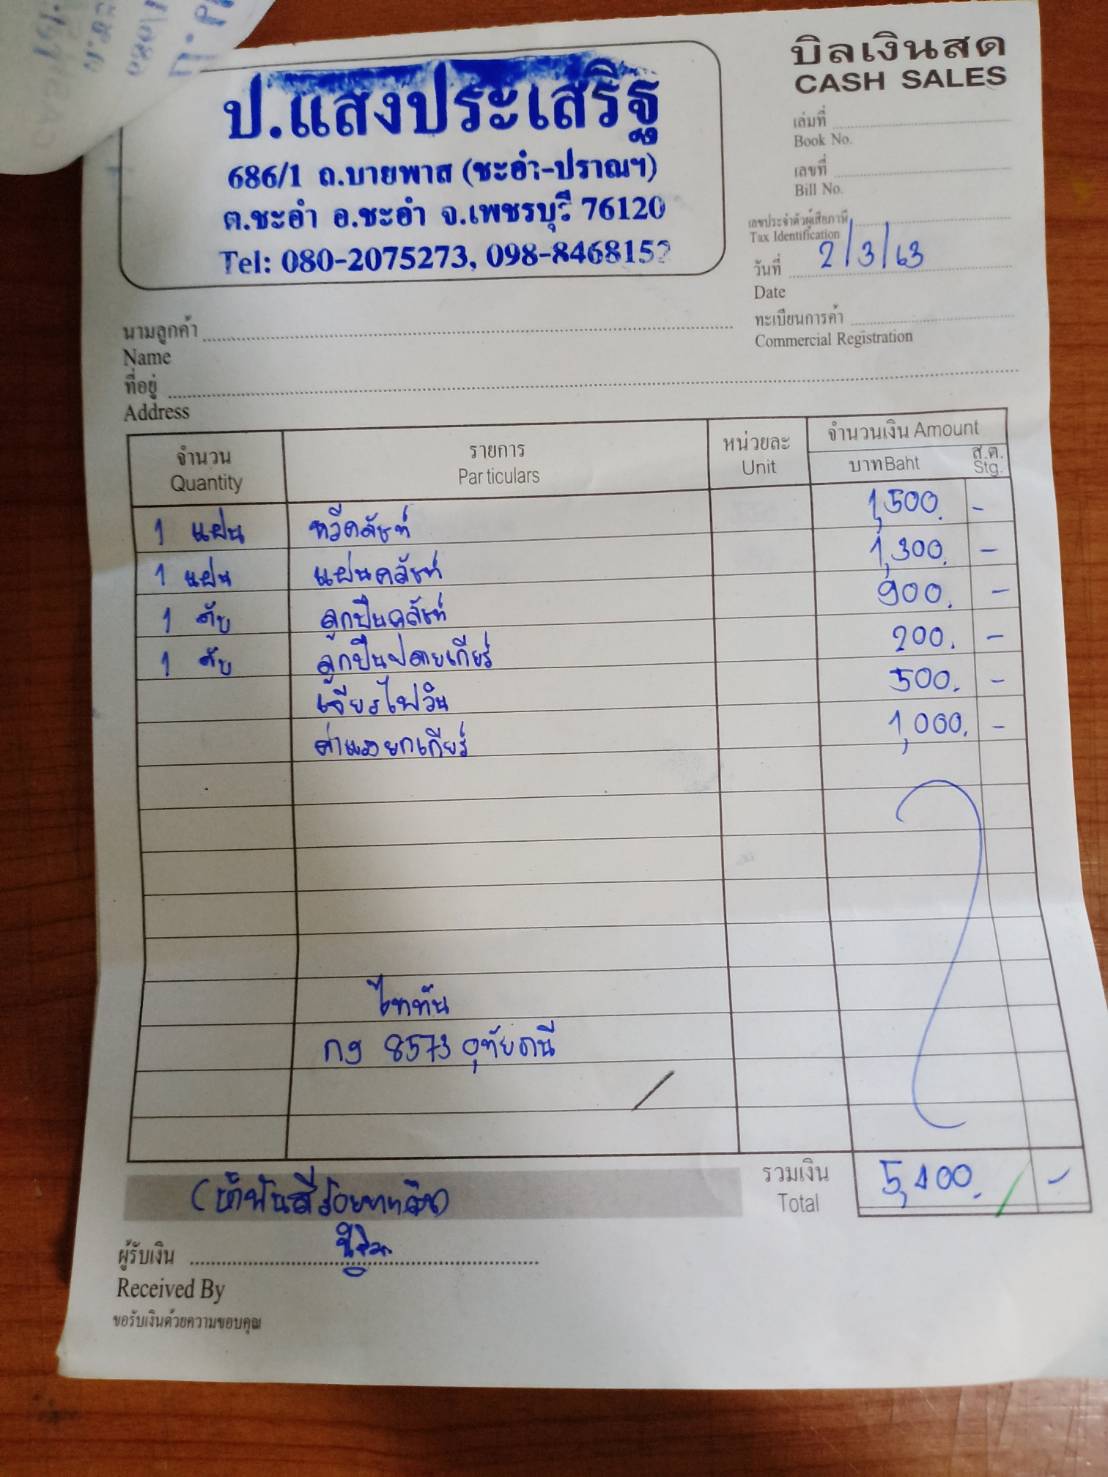 บิลเงินสด
CASH SALES
ป.แสงประเสริฐ
686/1 ถ.บายพาส (ชะอำ-ปราณฯ)
ต.ชะอำ อ.ชะอำ จ.เพชรบุรี 76120
Tel: 080-2075273, 098-8468152
เล่มที่
Book No.
เลขที่
Bill No.
เลขประจำตัวผู้เสียภาษี
Tax Identification
วันที่ 2/3/63
Date
ทะเบียนการค้า
Commercial Registration
นามลูกค้า
Name
ที่อยู่
Address
จำนวน รายการ หน่วยละ จำนวนเงิน Amount
Quantity Particulars Unit บาท Baht ส.ต. Stg.
1 แผ่น หวีคลัชท์ 1,500. -
1 แผ่น แผ่นคลัชท์ 1,300. -
1 ตับ ลูกปืนคลัชท์ 900. -
1 ตับ ลูกปืนปลายเกียร์ 200. -
เจียรไฟวิน 500. -
ค่าแรงยกเกียร์ 1,000. -
ไททัน
กง 8573 อุทัยธานี
รวมเงิน 5,400. -
Total
(ห้าพันสี่ร้อยบาทถ้วน)
ผู้รับเงิน
Received By
ขอรับเงินด้วยความขอบคุณ